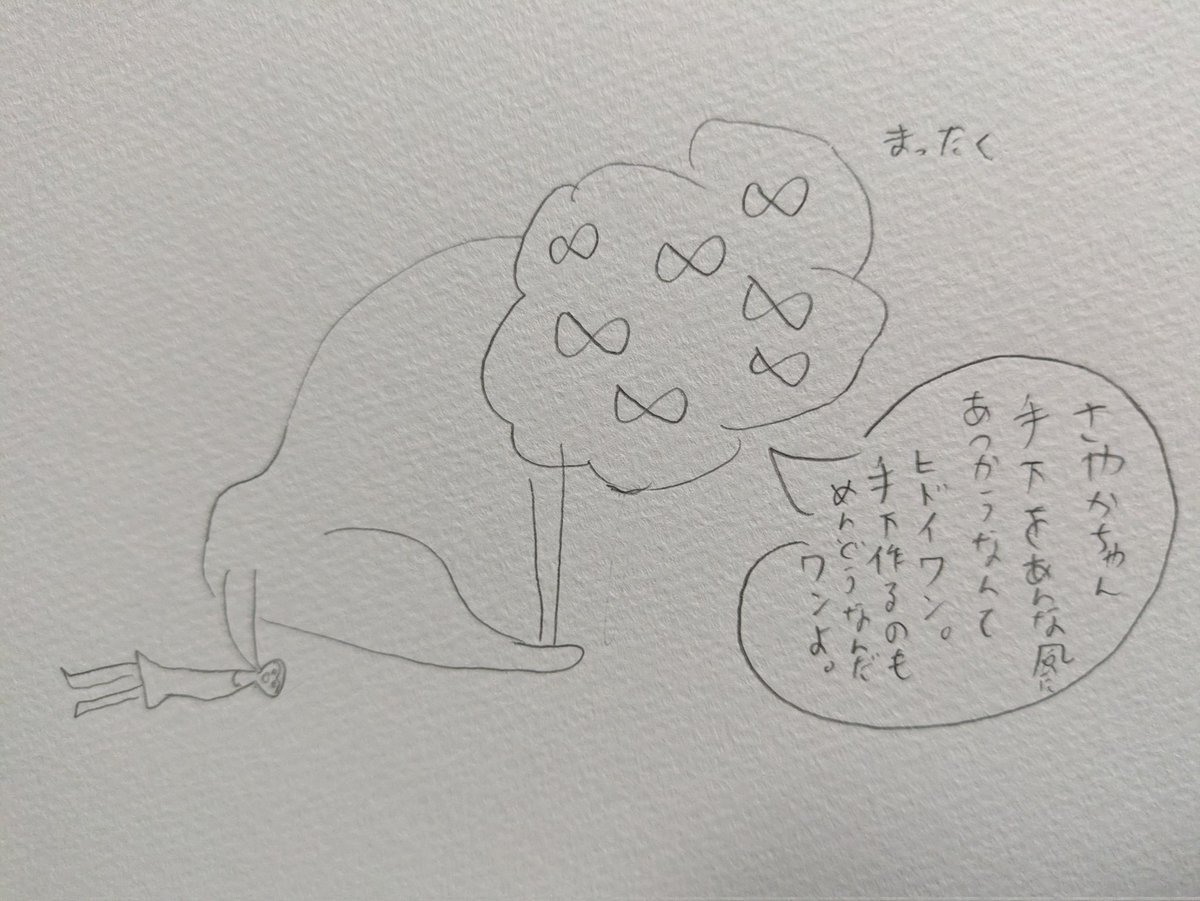 まったく
さやかちゃん
手下をあんな風に
あつかうなんて
ヒドイワン。
手下作るのも
めんどうなんだ
ワンよ。